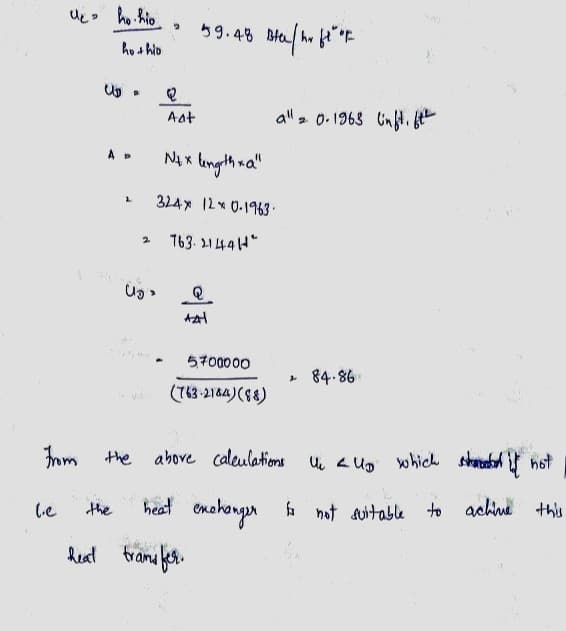 Uc = ho.hio / ho+hio = 59.48 Btu/hr ft² °F
UD = Q / AΔt a" = 0.1963 linft. ft²
A = Nt x length x a"
= 324 x 12 x 0.1963.
= 763.2144 ft²
UD = Q / AΔt
= 5700000 / (763.2144)(88) = 84.86
From the above calculations Uc < UD which if not
i.e the heat exchanger is not suitable to achive this
heat transfer.